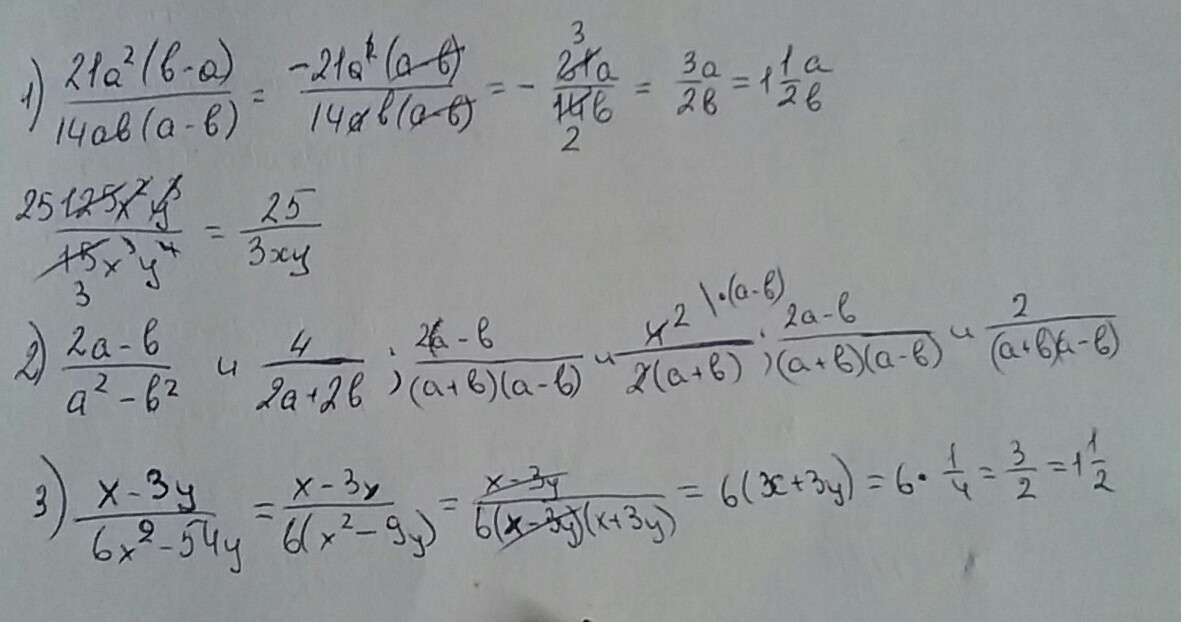 1) 21a²(в-а) / 14ав(а-в) = -21a²(а-в) / 14ав(а-в) = - 21а / 14в = 3а / 2в = 1 1/2 а/в
25 125x²y³ / 15x³y⁴ 3 = 25 / 3xy
2) 2а-в / а²-в² и 4 / 2а+2в ; 2а-в / (а+в)(а-в) и 4 2 / 2(а+в) \·(а-в) ; 2а-в / (а+в)(а-в) и 2 / (а+в)(а-в)
3) x-3y / 6x²-54y = x-3y / 6(x²-9y) = x-3y / 6(x-3y)(x+3y) = 6(x+3y) = 6·1/4 = 3/2 = 1 1/2